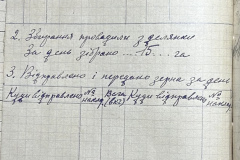 2. Збирання проводили з ділянки
За день зібрано ... 15 ... га
3. Відправлено і передано зерна за день
Куди відправлено № наклад. Вага (в кг) Куди відправлено № наклад.